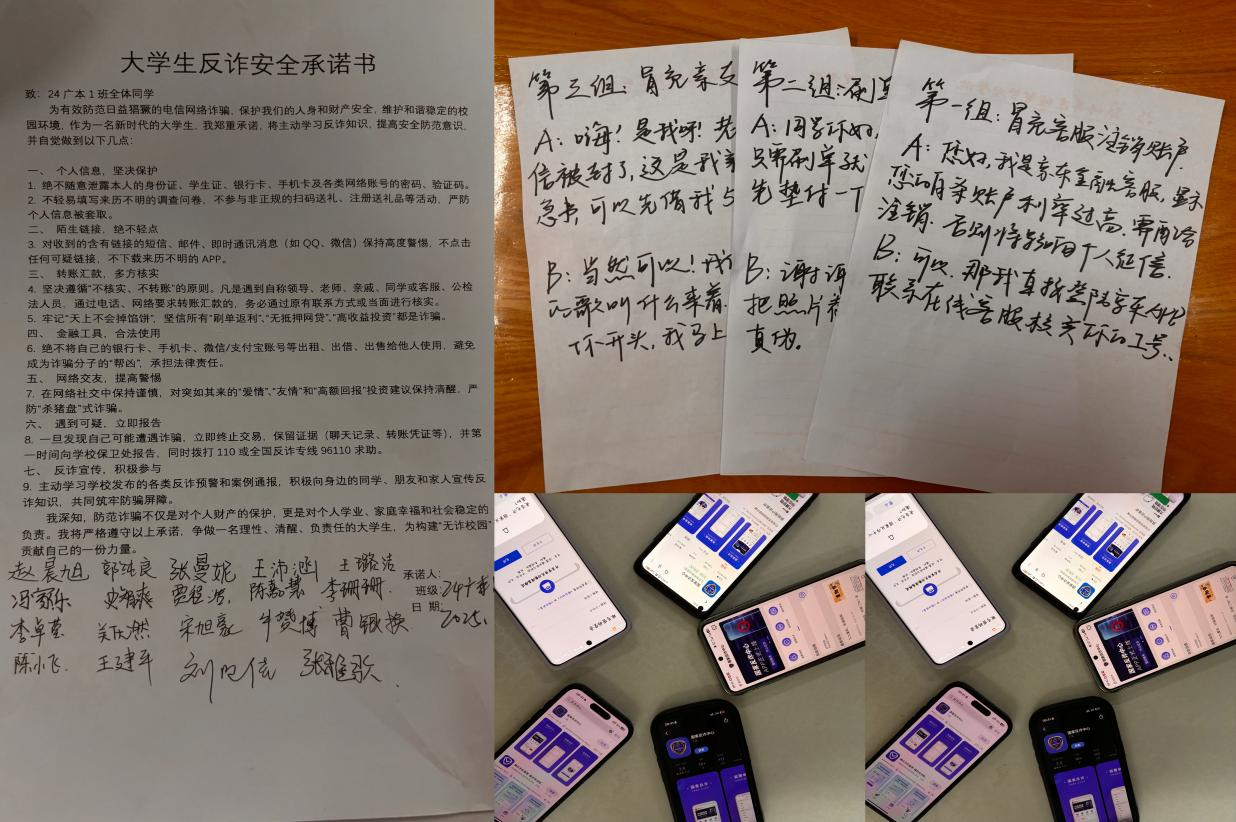 大学生反诈安全承诺书
致：24广本1班全体同学
为有效防范日益猖獗的电信网络诈骗，保护我们的人身和财产安全，维护和谐稳定的校
园环境，作为一名新时代的大学生，我郑重承诺，将主动学习反诈知识，提高安全防范意识，
并自觉做到以下几点：
一、 个人信息，坚决保护
1. 绝不随意泄露本人的身份证、学生证、银行卡、手机卡及各类网络账号的密码、验证码。
2. 不轻易填写来历不明的调查问卷，不参与非正规的扫码送礼、注册送礼品等活动，严防
个人信息被套取。
二、 陌生链接，绝不轻点
3. 对收到的含有链接的短信、邮件、即时通讯消息（如QQ、微信）保持高度警惕，不点击
任何可疑链接，不下载来历不明的APP。
三、 转账汇款，多方核实
4. 坚决遵循“不核实、不转账”的原则。凡是遇到自称领导、老师、亲戚、同学或客服、公检
法人员，通过电话、网络要求转账汇款的，务必通过原有联系方式或当面进行核实。
5. 牢记“天上不会掉馅饼”，坚信所有“刷单返利”、“无抵押网贷”、“高收益投资”都是诈骗。
四、 金融工具，合法使用
6. 绝不将自己的银行卡、手机卡、微信/支付宝账号等出租、出借、出售给他人使用，避免
成为诈骗分子的“帮凶”，承担法律责任。
五、 网络交友，提高警惕
7. 在网络社交中保持谨慎，对突如其来的“爱情”、“友情”和“高额回报”投资建议保持清醒，严
防“杀猪盘”式诈骗。
六、 遇到可疑，立即报告
8. 一旦发现自己可能遭遇诈骗，立即终止交易，保留证据（聊天记录、转账凭证等），并第
一时间向学校保卫处报告，同时拨打110或全国反诈专线96110求助。
七、 反诈宣传，积极参与
9. 主动学习学校发布的各类反诈预警和案例通报，积极向身边的同学、朋友和家人宣传反
诈知识，共同筑牢防骗屏障。
我深知，防范诈骗不仅是对个人财产的保护，更是对个人学业、家庭幸福和社会稳定的
负责。我将严格遵守以上承诺，争做一名理性、清醒、负责任的大学生，为构建“无诈校园”
贡献自己的一份力量。
赵晨旭 郭纯良 张曼妮 王沛涵 王璐洁
承诺人：
陈嘉慧 李珊珊
班级：24广本
李卓莹 宋旭豪 牛赞博 曹银换
日期：2025.
陈小飞 王建平
第三组：冒充亲友
A：嗨！是我呀！先
信被封了，这是我亲
急事，可以先借我5
B：当然可以！我们
的歌叫什么来着
个开头，我马上
第二组：刷
A：同学你好，
只需刷单就
先垫付一下
B：谢谢
把照片
真伪。
第一组：冒充客服注销账户
A：您好，我是京东金融客服，显示
您的白条账户利率过高，需配合
注销，否则将影响个人征信。
B：可以，那我直接登陆京东APP
联系在线客服核实你的工号。
国家反诈中心
国家反诈中心